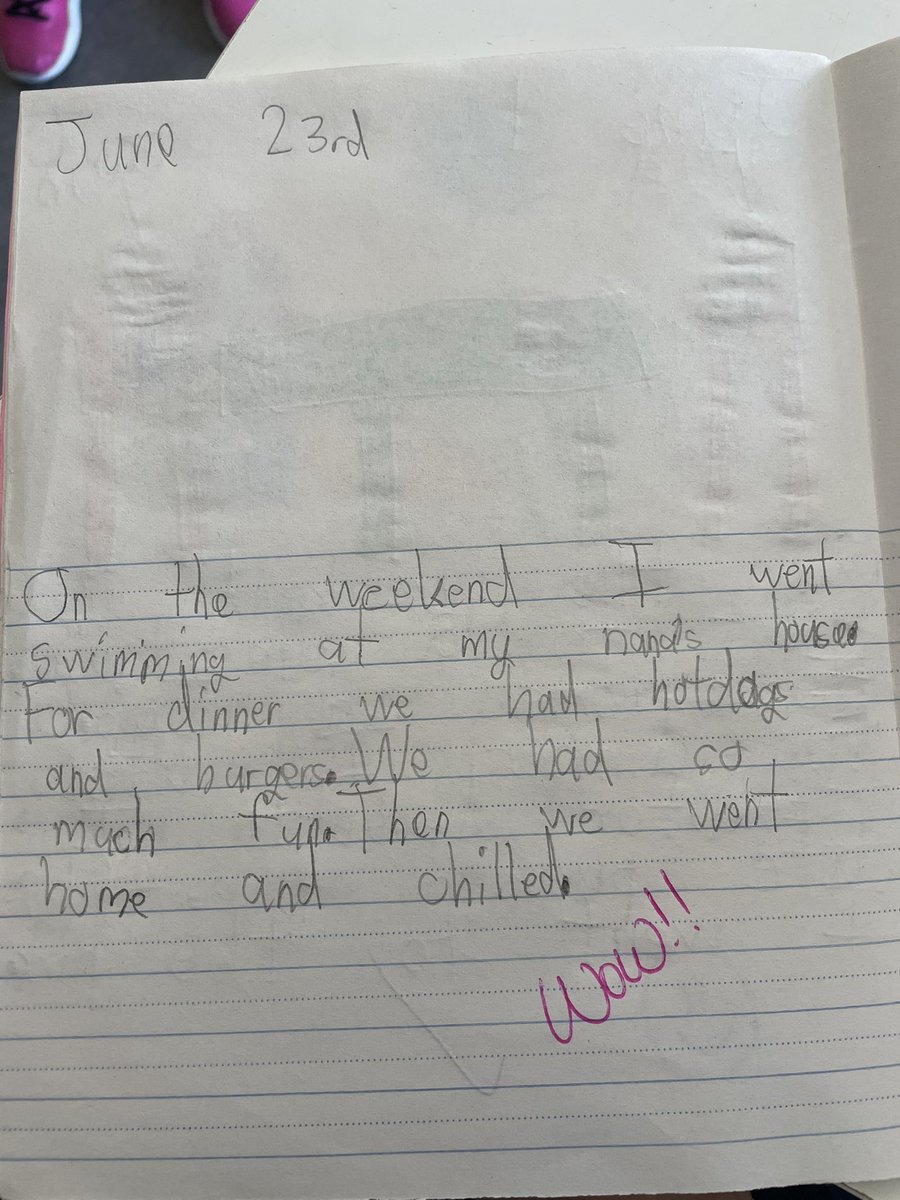 June 23rd
On the weekend I went
swimming at my nana's house.
For dinner we had hotdogs
and burgers. We had so
much fun. Then we went
home and chilled.
Wow!!